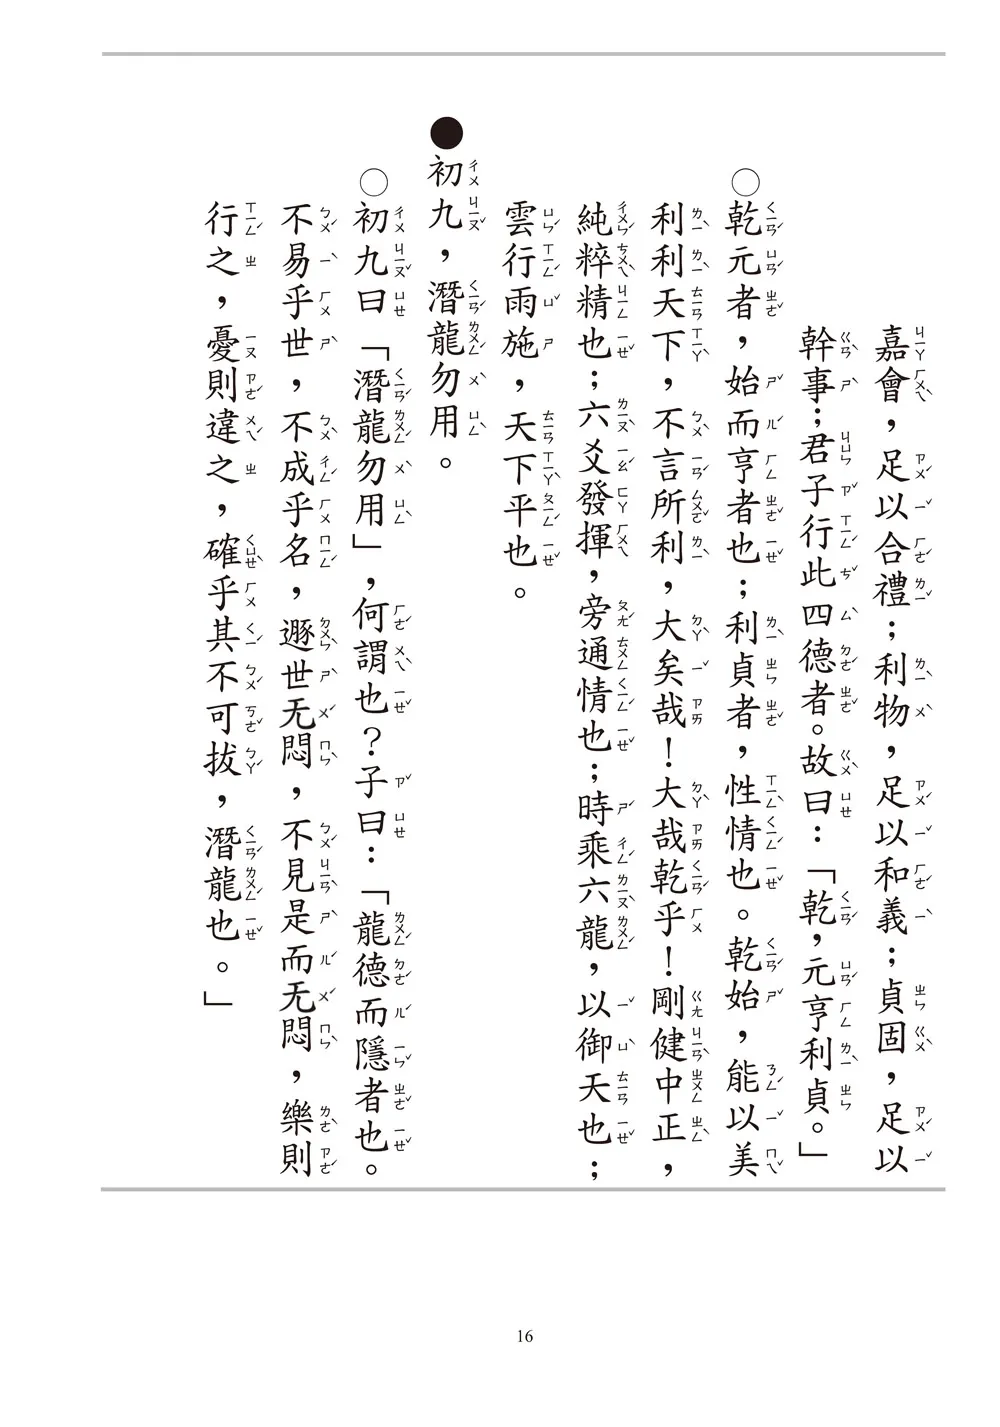 嘉會，足以合禮；利物，足以和義；貞固，足以
幹事；君子行此四德者。故曰：「乾，元亨利貞。」
○乾元者，始而亨者也；利貞者，性情也。乾始，能以美
利利天下，不言所利，大矣哉！大哉乾乎！剛健中正，
純粹精也；六爻發揮，旁通情也；時乘六龍，以御天也；
雲行雨施，天下平也。
●初九，潛龍勿用。
○初九曰「潛龍勿用」，何謂也？子曰：「龍德而隱者也。
不易乎世，不成乎名，遯世无悶，不見是而无悶，樂則
行之，憂則違之，確乎其不可拔，潛龍也。」
16